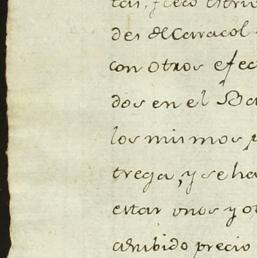 des del Caracol
con otros efec
dos en el Ba
los mismos, 
trega, y se ha
estar unos y ot
ahibido precio